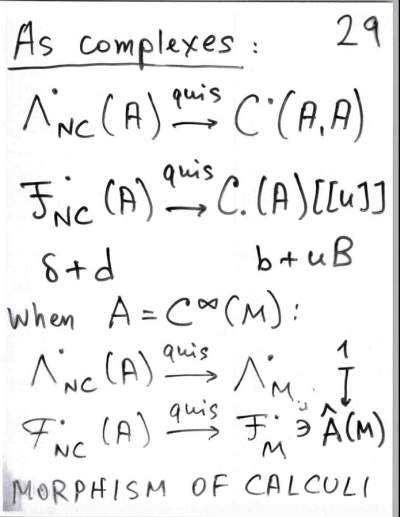 As complexes: 29
Λ˙_NC (A) quis → C˙(A,A)
F˙_NC (A) quis → C.(A)[[u]]
δ+d b+uB
When A = C^∞(M):
Λ˙_NC (A) quis → Λ˙_M 1
F˙_NC (A) quis → F˙_M ∋ Â(M)
MORPHISM OF CALCULI